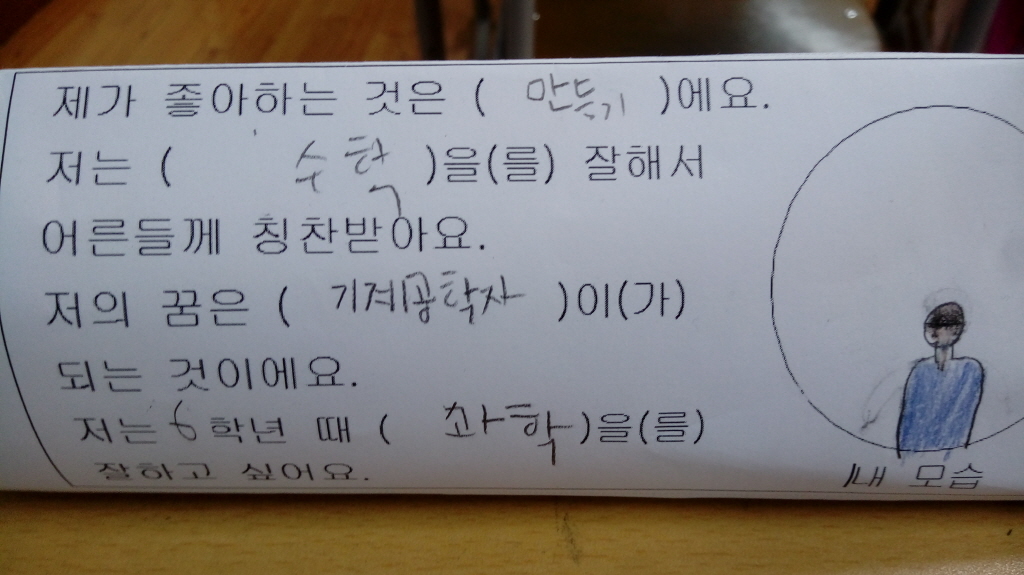 제가 좋아하는 것은 ( 만들기 )에요.
저는 ( 수학 )을(를) 잘해서
어른들께 칭찬받아요.
저의 꿈은 ( 기계공학자 )이(가)
되는 것이에요.
저는 6학년 때 ( 과학 )을(를)
잘하고 싶어요.
내 모습